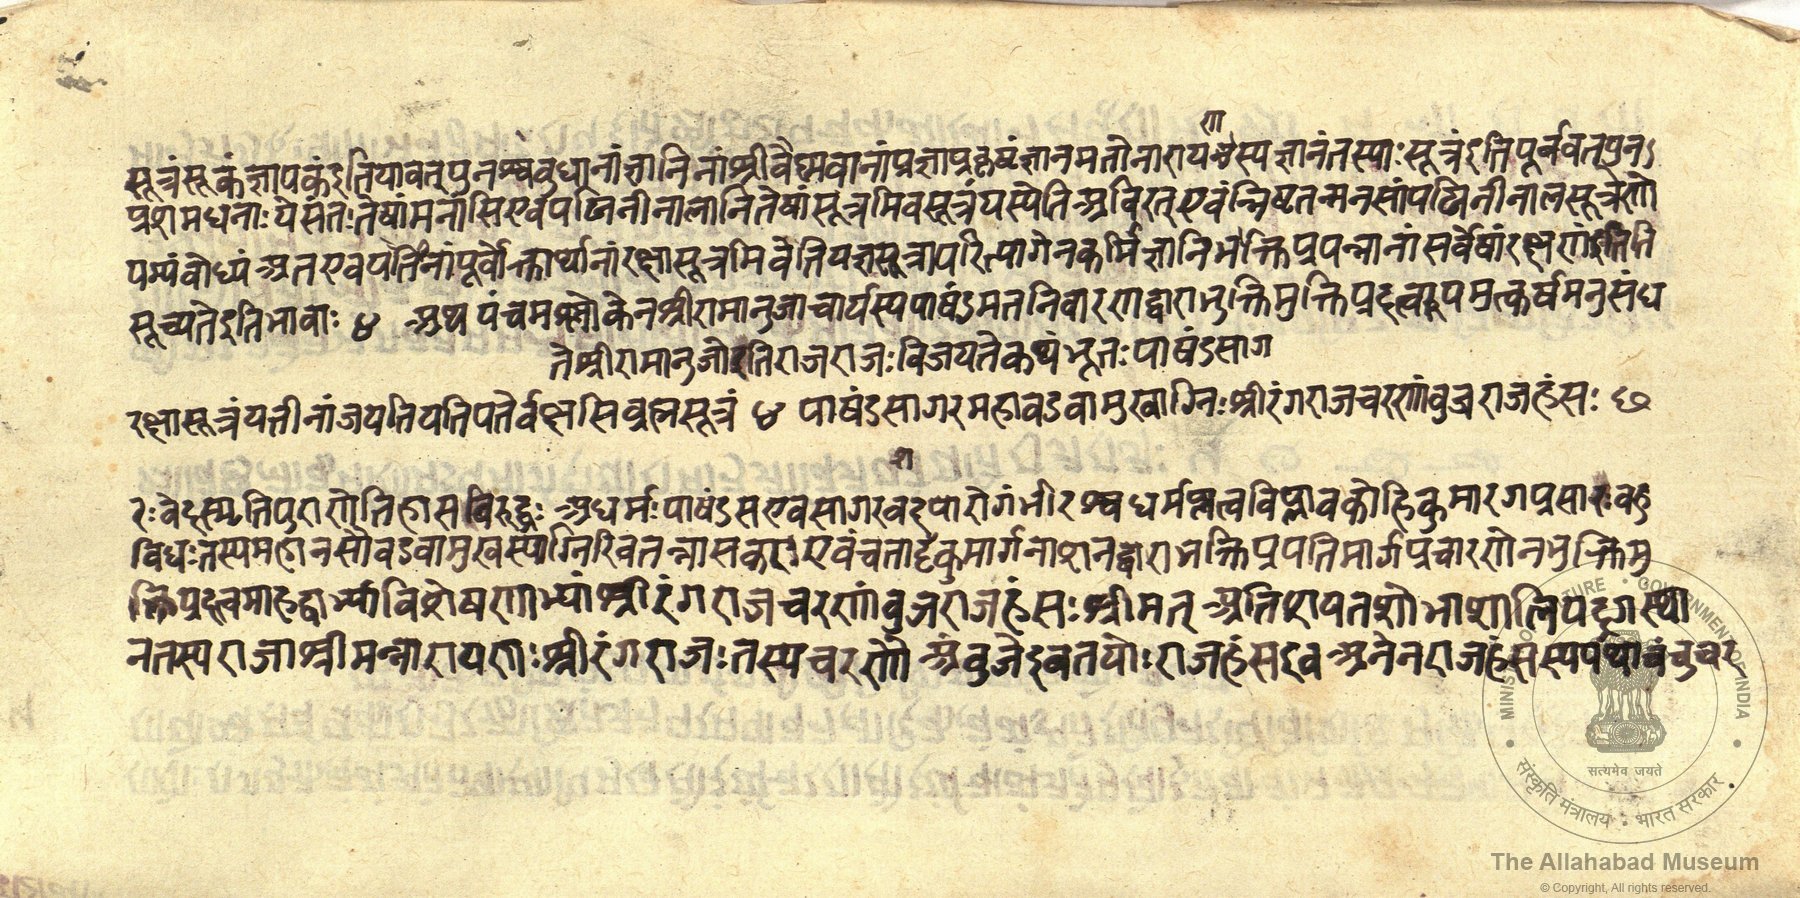 ण
सूत्रंसूक्तंज्ञापकंइतियावत्पुनश्चबुधानांज्ञानिनांश्रीवैष्मवानांप्रज्ञाप्रकृष्टंज्ञानमतोनारायश्चैस्यज्ञानंतस्याःसूत्रंइतिपूर्ववत्पुनः
प्रशमधनाःयेसंतःतेषांमनांसिएवपद्मिनीनालानितेषांसूत्रमिवसूत्रंयस्येतिअविरत्एवंन्निष्टतन्मनसांपद्मिनीनालसूत्रेणो
पम्यंबोध्यंअतएवपतिनांपूर्वोक्तार्थानांरक्षासूत्रमिवेतियज्ञसूत्रापरित्यागेनकर्मिज्ञानिभक्तिप्रपन्नानांसर्वेषांरक्षणंइतिति
सूच्यतेइतिभावाः ४ अथपंचमश्लोकेनश्रीरामानुजाचार्यस्यपाषंडमतनिवारणद्वाराभुक्तिमुक्तिप्रदत्वरूपमुत्कर्षमनुसंध
तेश्रीरामानुजोइतिराजराजःविजयतेकथंभूतःपाषंडसाग
रक्षासूत्रंयतीनांजयतियतिपतेर्वक्षसिब्रह्मसूत्रं ४ पाषंडसागरमहावडवामुखाग्निःश्रीरंगराजचरणांवुजराजहंसः छ
श
रःवेदस्मृतिपुराणेतिहासविरुद्धःअधर्मःपाषंडसएवसागरवदपारोगंभीरश्चधर्मप्लत्वविप्लावकोहिकुमारगप्रसारःवहु
विधःतस्यमहानसौवडवामुखस्याग्निरिवतन्नासकःएवंचतार्दृकुमार्गनाशनद्वाराभक्तिप्रपतिमार्गप्रचारणेनभुक्तिमु
क्तिप्रदत्वमाहद्वाभ्यांविशेषणाभ्यांश्रीरंगराजचरणांवुजराजहंसःश्रीमत्अतिशयतशोभाशालियदृगस्था
नतस्यराजाश्रीमन्नारायणःश्रीरंगराजःतस्यचरणौअंवुजेइवतयोःराजहंसइवअनेनराजहंसस्यर्पथावंवुचर
MINISTRY OF CULTURE • GOVERNMENT OF INDIA
सत्यमेव जयते
संस्कृति मंत्रालय • भारत सरकार
The Allahabad Museum
© Copyright, All rights reserved.